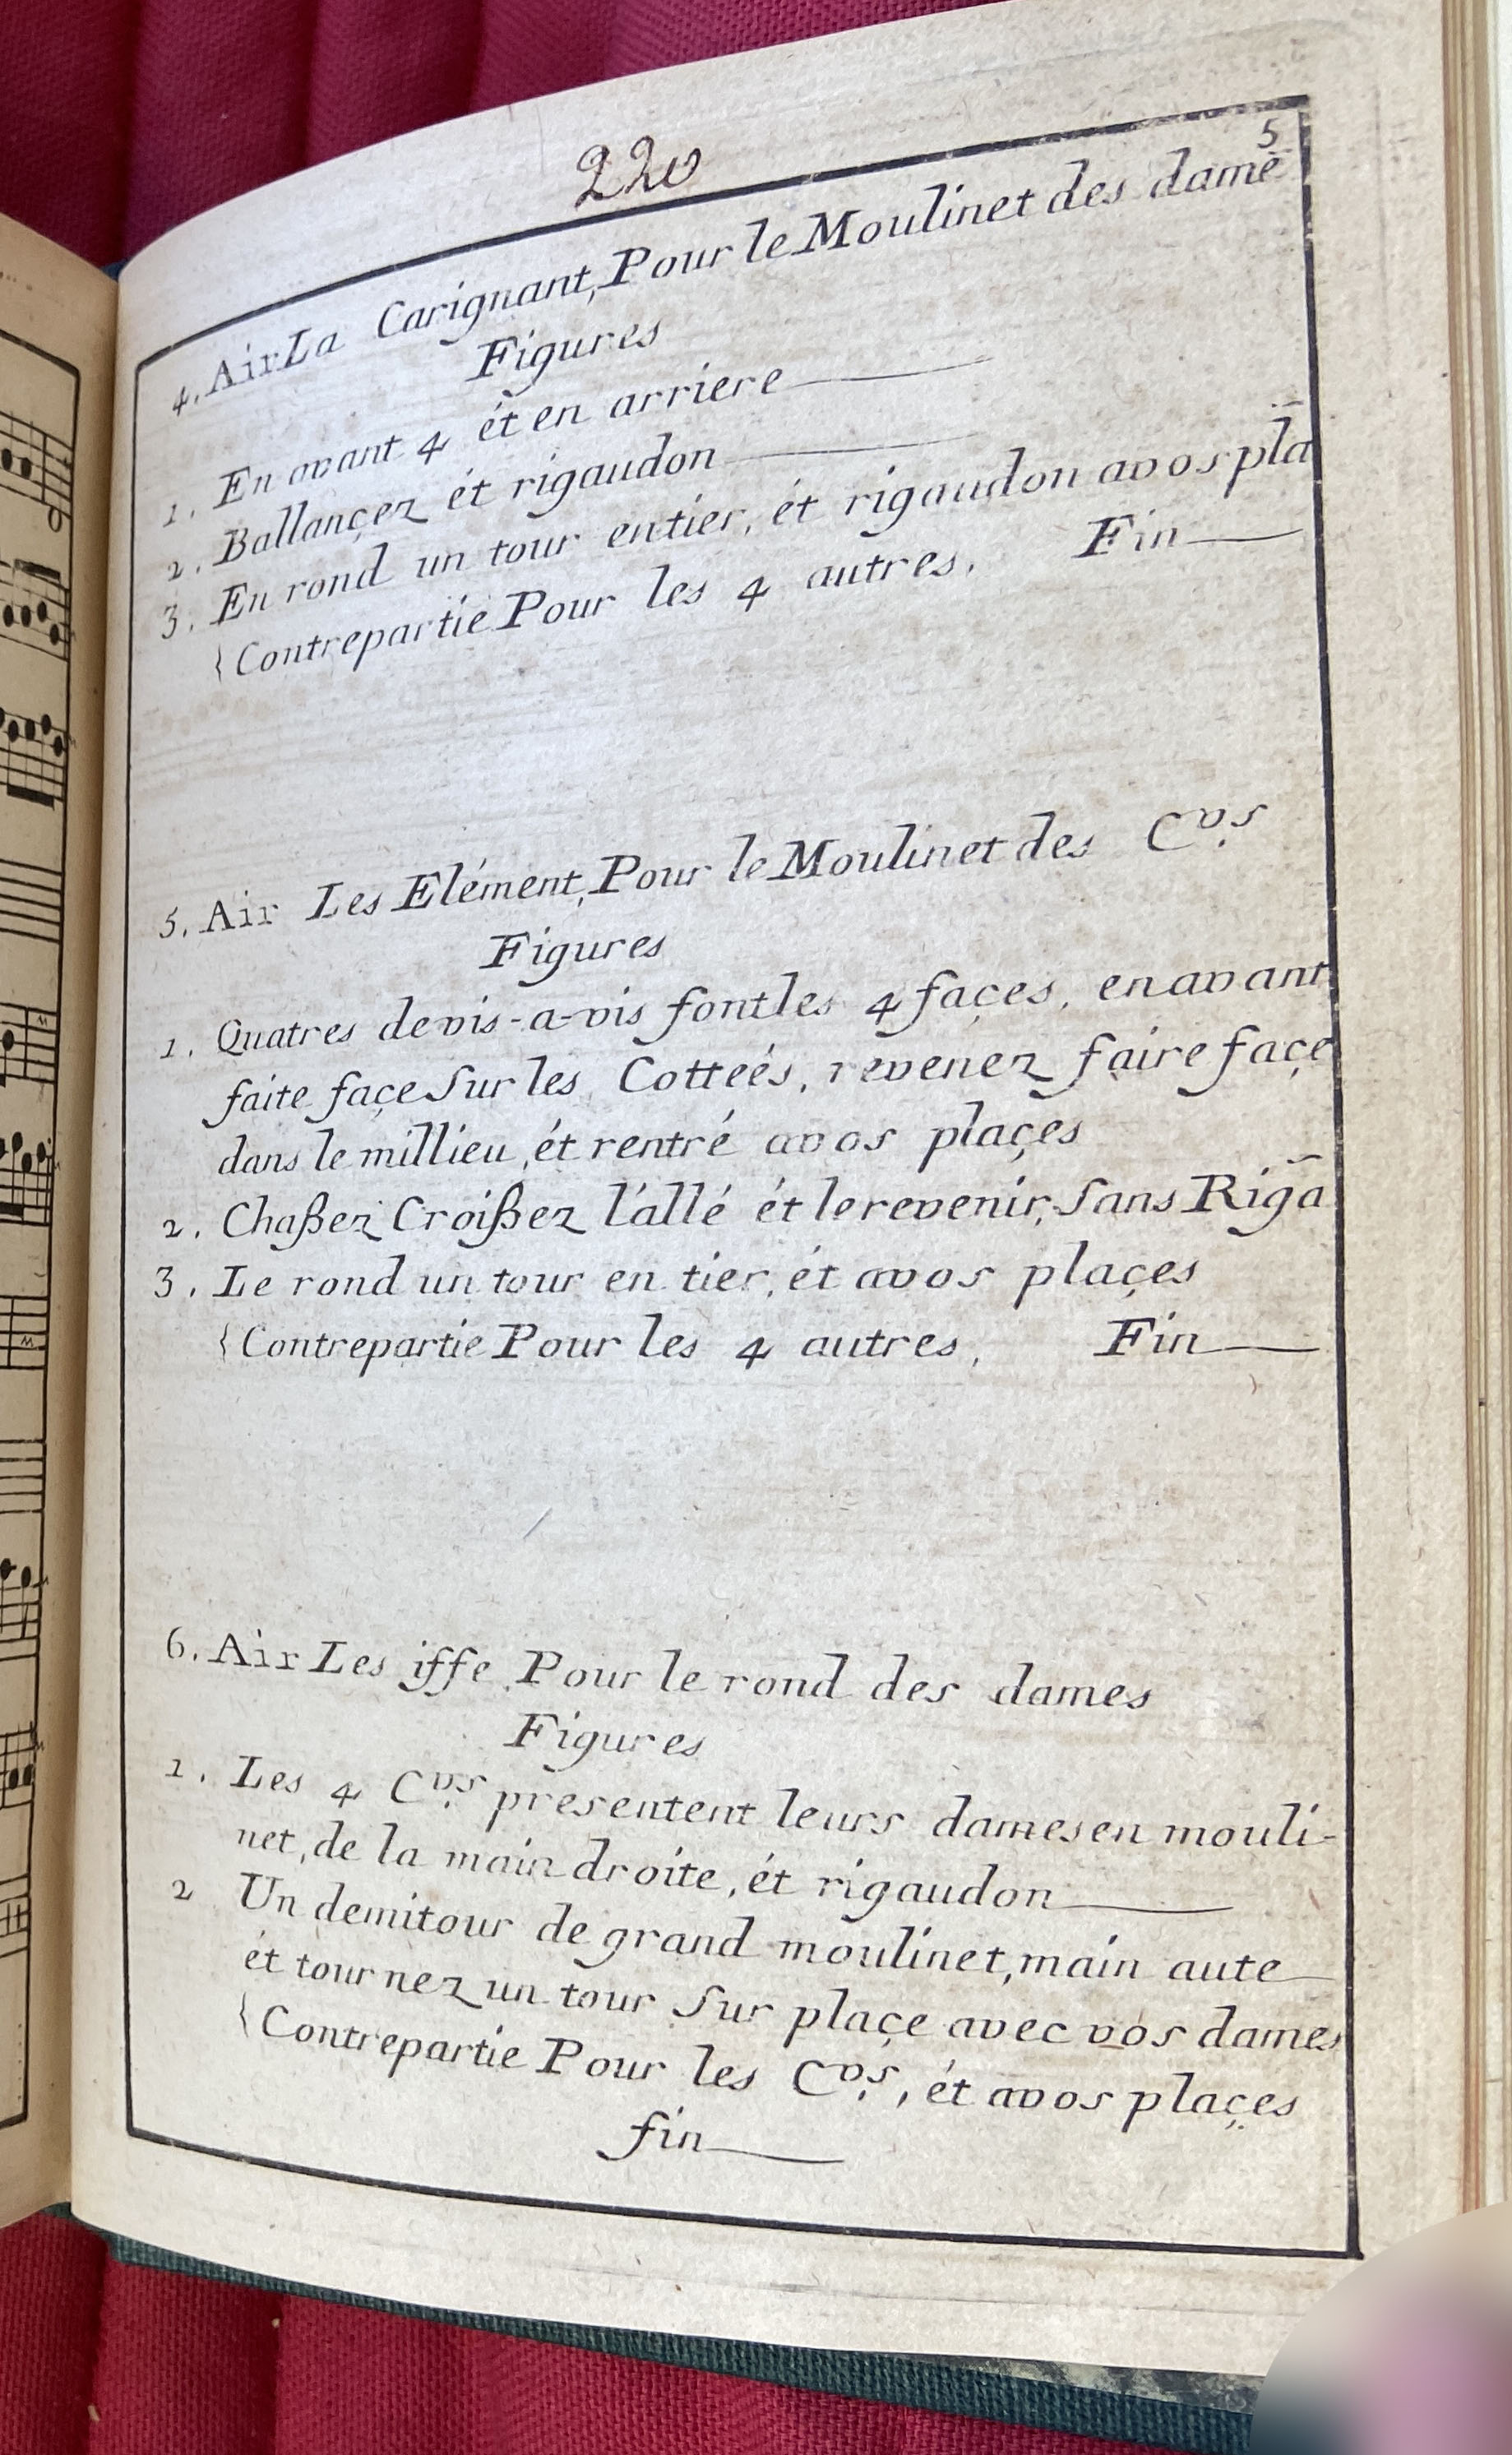 220
5
4. Air La Carignant, Pour le Moulinet des dame
Figures
1. En avant 4 ét en arriere
2. Ballançez ét rigaudon
3. En rond un tour entier, ét rigaudon avos pla
{Contrepartie Pour les 4 autres. Fin
5. Air Les Elément, Pour le Moulinet des Cvs
Figures
1. Quatres devis-a-vis font les 4 façes, en avant
faite façe Sur les Cotteés, revenez faire façe
dans le millieu, ét rentré avos plaçes
2. Chaßez Croißez l'allé ét le revenir, Sans Riga
3. Le rond un tour en tier, ét avos plaçes
{Contrepartie Pour les 4 autres, Fin
6. Air Les iffe, Pour le rond des dames
Figures
1. Les 4 Cvs presentent leurs dames en mouli-
net, de la main droite, ét rigaudon
2 Un demitour de grand moulinet, main aute
ét tournez un tour Sur plaçe avec vos dames
{Contrepartie Pour les Cvs, ét avos plaçes
fin